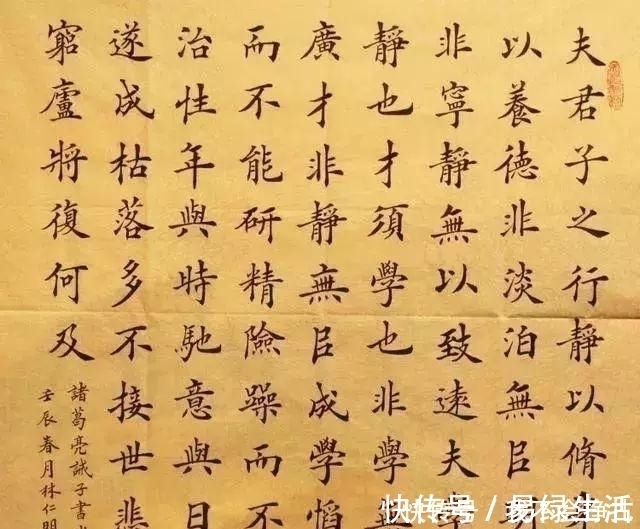 夫君子之行靜以脩
以養德非淡泊無㠯
非寧靜無以致遠夫
靜也才須學也非學
廣才非靜無㠯成學慆
而不能研精險躁而不
治性年與時馳意與日
遂成枯落多不接世悲
窮廬將復何及
諸葛亮誡子書
壬辰春月林仁明
快传号／易绿生活